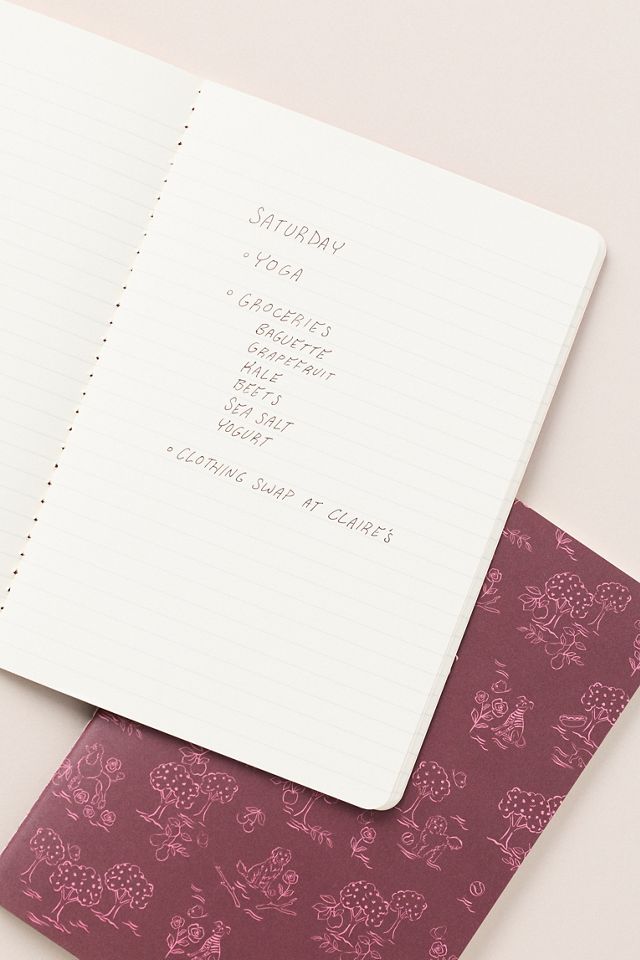 SATURDAY
° YOGA
° GROCERIES
BAGUETTE
GRAPEFRUIT
KALE
BEETS
SEA SALT
YOGURT
° CLOTHING SWAP AT CLAIRE'S